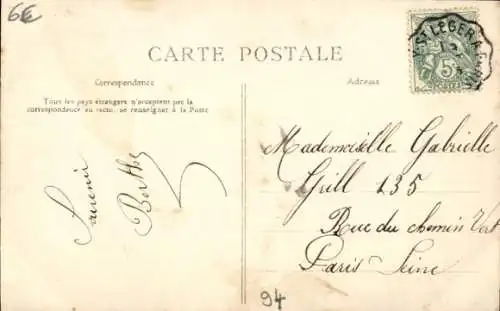 6€
ST LEGER
5
CARTE POSTALE
Correspondance
Adresse
Tous les pays étrangers n'acceptent pas la
correspondance au recto, se renseigner à la Poste
Souvenir
Berthe
Mademoiselle Gabrielle
Grill 135
Rue du chemin Vert
Paris Seine
94